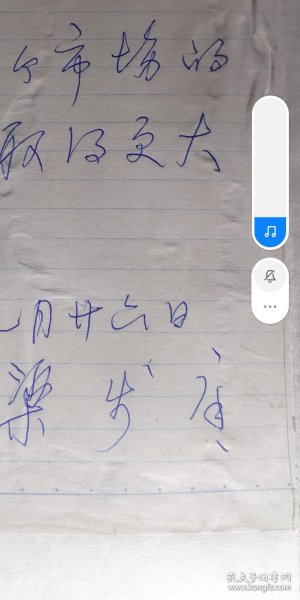 个市场的
取得更大
月廿六日
梁步庭
孔夫子旧书网
www.kongfz.com